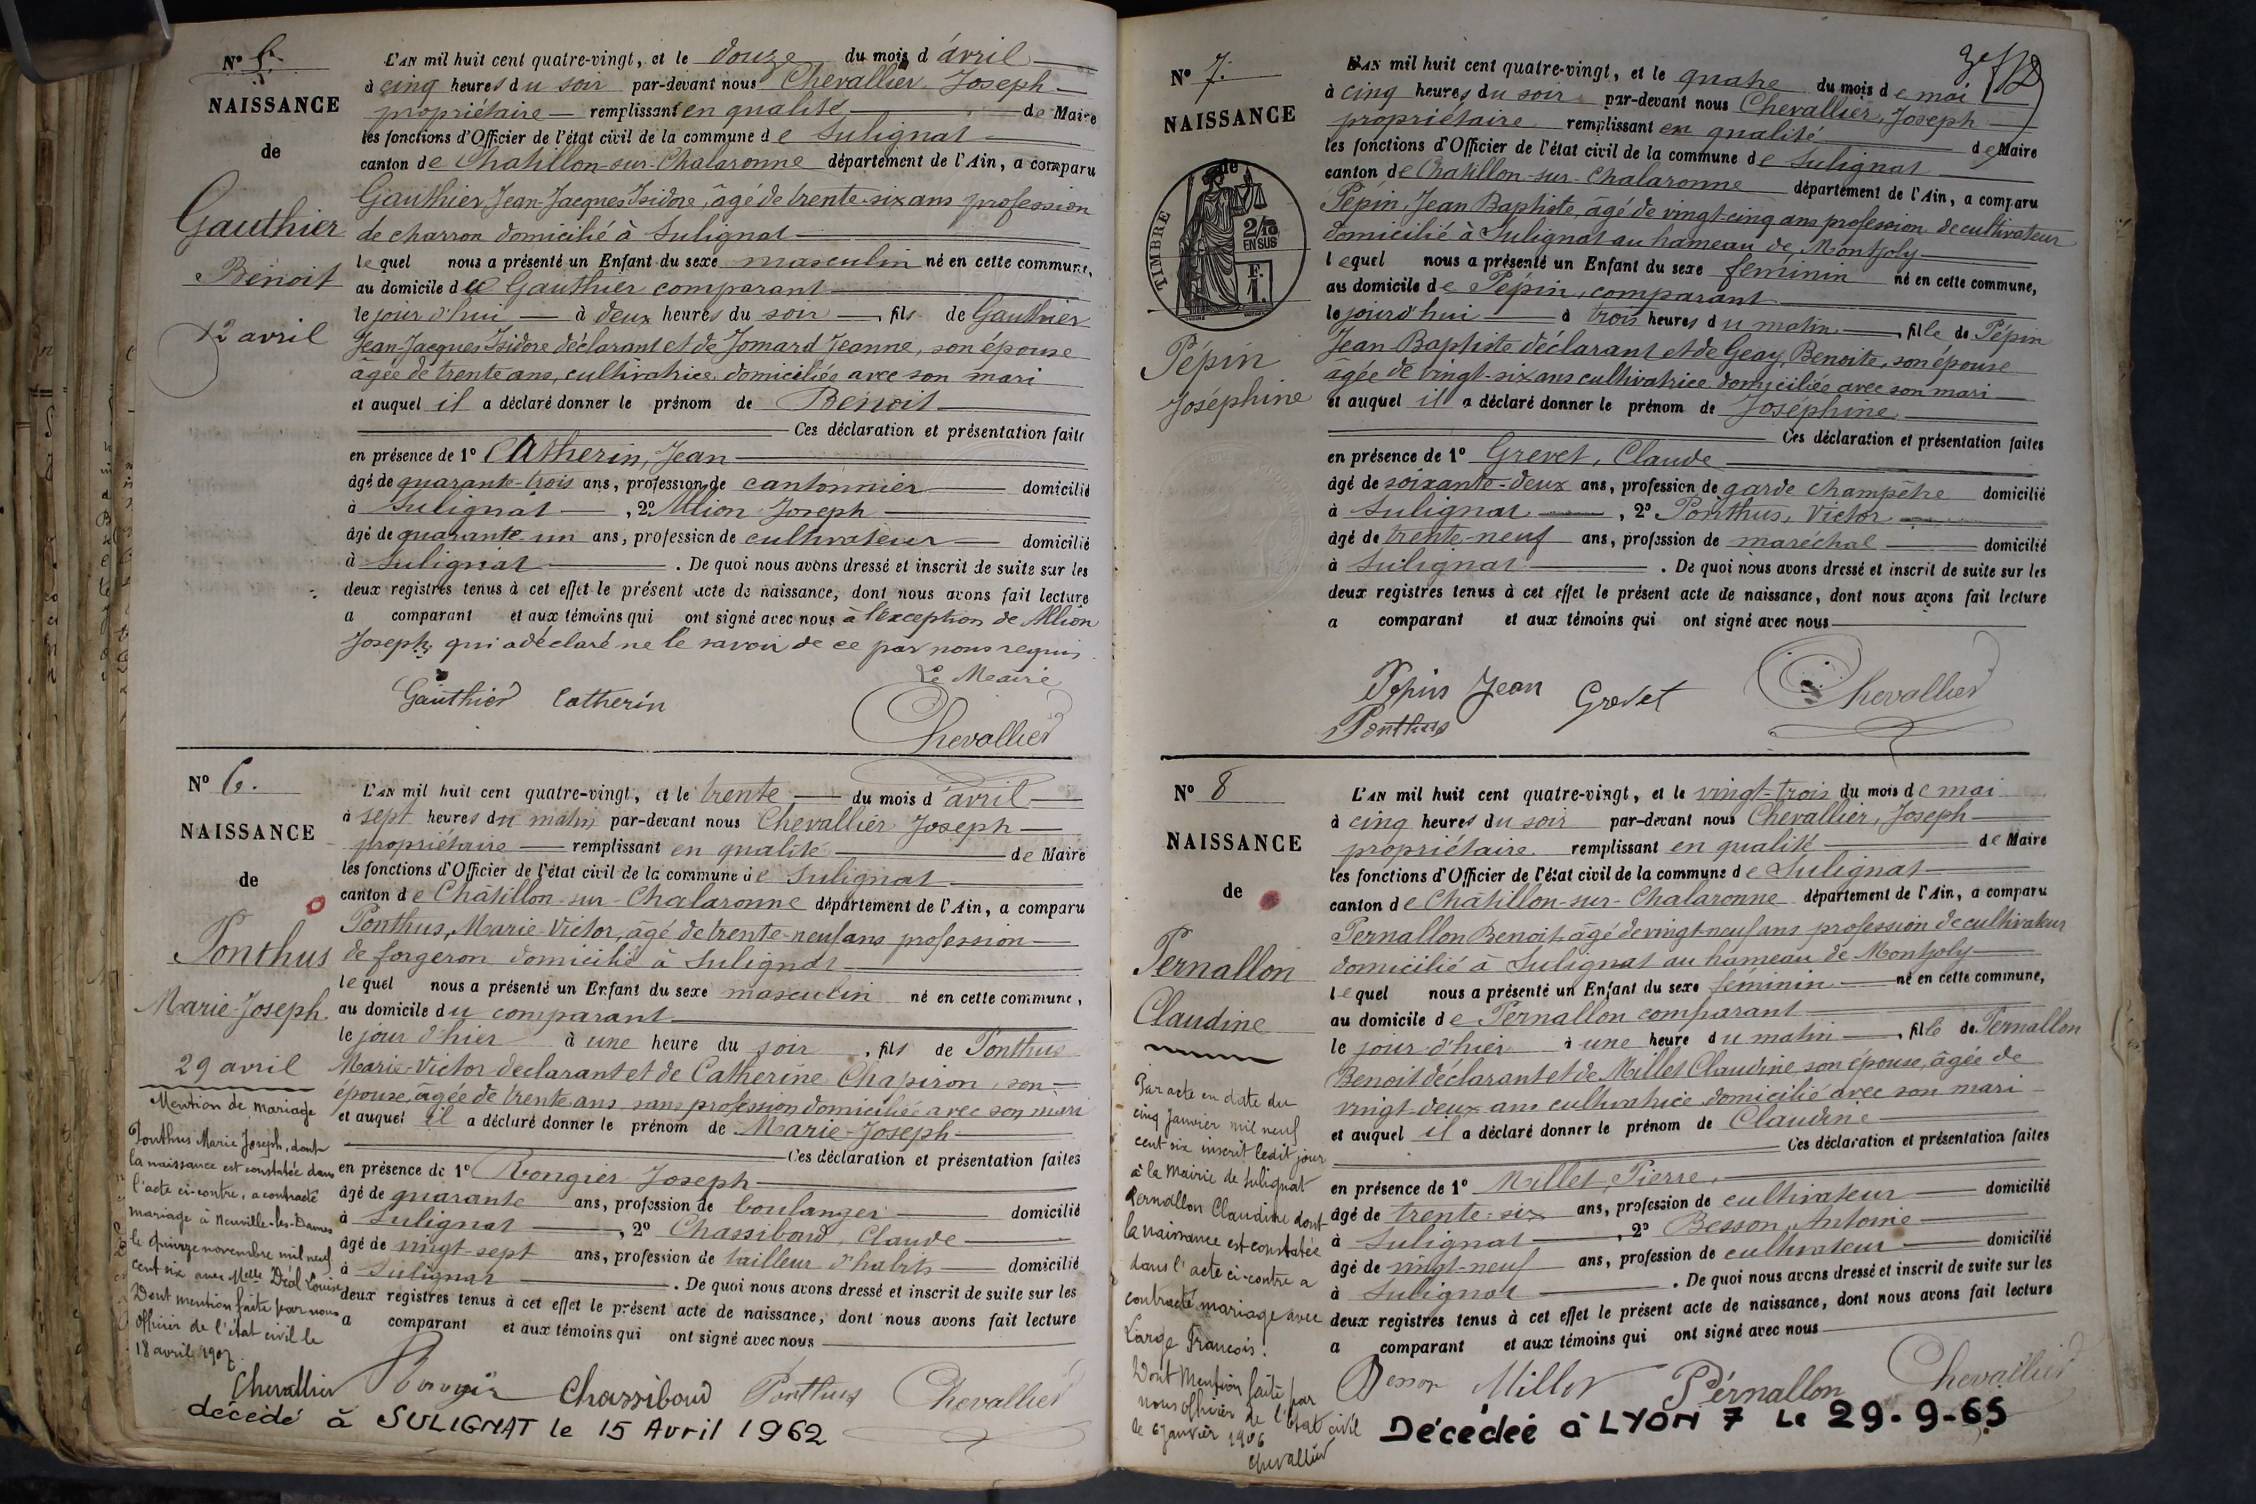 N°
NAISSANCE
de
Gauthier
Benoit
12 avril
L'AN mil huit cent quatre-vingt, et le douze du mois d'avril
à cinq heures du soir par-devant nous Chevallier, Joseph
propriétaire remplissant en qualité de Maire
les fonctions d'Officier de l'état civil de la commune de Sulignat
canton de Chatillon-sur-Chalaronne département de l'Ain, a comparu
Gauthier, Jean-Jacques Isidore, âgé de trente-six ans profession
de charron domicilié à Sulignat
lequel nous a présenté un Enfant du sexe masculin né en cette commune,
au domicile de Gauthier comparant
le jour d'hui à deux heures du soir, fils de Gauthier
Jean-Jacques Isidore déclarant et de Jomard Jeanne, son épouse
âgée de trente ans, cultivatrice domiciliée avec son mari
et auquel il a déclaré donner le prénom de Benoit
Ces déclaration et présentation faites
en présence de 1° Catherin, Jean
âgé de quarante-trois ans, profession de cantonnier domicilié
à Sulignat, 2° Allion Joseph
âgé de quarante un ans, profession de cultivateur domicilié
à Sulignat. De quoi nous avons dressé et inscrit de suite sur les
deux registres tenus à cet effet le présent acte de naissance, dont nous avons fait lecture
a comparant et aux témoins qui ont signé avec nous à l'exception de Allion
Joseph, qui a déclaré ne le savoir de ce par nous requis
Le Maire
Gauthier Catherin
Chevallier
N° 6.
NAISSANCE
de
Ponthus
Marie-Joseph.
29 avril
L'AN mil huit cent quatre-vingt, et le trente du mois d'avril
à sept heures du matin par-devant nous Chevallier Joseph
propriétaire remplissant en qualité de Maire
les fonctions d'Officier de l'état civil de la commune de Sulignat
canton de Châtillon-sur-Chalaronne département de l'Ain, a comparu
Ponthus, Marie-Victor, âgé de trente-neuf ans profession
de forgeron domicilié à Sulignat
lequel nous a présenté un Enfant du sexe masculin né en cette commune,
au domicile du comparant
le jour d'hier à une heure du soir, fils de Ponthus
Marie-Victor déclarant et de Catherine Chapiron, son
épouse, âgée de trente ans, sans profession domiciliée avec son mari
et auquel il a déclaré donner le prénom de Marie-Joseph
Ces déclaration et présentation faites
en présence de 1° Rongier Joseph
âgé de quarante ans, profession de boulanger domicilié
à Sulignat, 2° Chassiboud, Claude
âgé de vingt-sept ans, profession de tailleur d'habits domicilié
à Sulignat. De quoi nous avons dressé et inscrit de suite sur les
deux registres tenus à cet effet le présent acte de naissance, dont nous avons fait lecture
a comparant et aux témoins qui ont signé avec nous
Mention de mariage
Ponthus Marie Joseph, dont
la naissance est constatée dans
l'acte ci-contre, a contracté
mariage à Neuville-les-Dames
le quinze novembre mil neuf
cent six avec Melle Déal Louise
Dont mention faite par nous
officier de l'état civil le
18 avril 1907.
Chevallier Rongier Chassiboud Ponthus Chevallier
décédé à SULIGNAT le 15 Avril 1962
N° 7.
NAISSANCE
de
TIMBRE
2/10
EN SUS
F.
1.
Pépin
Joséphine
L'AN mil huit cent quatre-vingt, et le quatre du mois de mai
à cinq heures du soir par-devant nous Chevallier, Joseph
propriétaire remplissant en qualité de Maire
les fonctions d'Officier de l'état civil de la commune de Sulignat
canton de Chatillon-sur-Chalaronne département de l'Ain, a comparu
Pépin, Jean Baptiste, âgé de vingt-cinq ans profession de cultivateur
domicilié à Sulignat au hameau de Montjoly
lequel nous a présenté un Enfant du sexe féminin né en cette commune,
au domicile de Pépin, comparant
le jourd'hui à trois heures du matin, fille de Pépin
Jean Baptiste déclarant et de Geay, Benoite, son épouse
âgée de vingt-six ans cultivatrice domiciliée avec son mari
et auquel il a déclaré donner le prénom de Joséphine
Ces déclaration et présentation faites
en présence de 1° Grevet, Claude
âgé de soixante-deux ans, profession de garde champêtre domicilié
à Sulignat, 2° Ponthus, Victor
âgé de trente-neuf ans, profession de maréchal domicilié
à Sulignat. De quoi nous avons dressé et inscrit de suite sur les
deux registres tenus à cet effet le présent acte de naissance, dont nous avons fait lecture
a comparant et aux témoins qui ont signé avec nous
Pépin Jean Grevet Chevallier
Ponthus
N° 8
NAISSANCE
de
Pernallon
Claudine
L'AN mil huit cent quatre-vingt, et le vingt-trois du mois de mai
à cinq heures du soir par-devant nous Chevallier, Joseph
propriétaire remplissant en qualité de Maire
les fonctions d'Officier de l'état civil de la commune de Sulignat
canton de Châtillon-sur-Chalaronne département de l'Ain, a comparu
Pernallon Benoit, âgé de vingt-neuf ans profession de cultivateur
domicilié à Sulignat au hameau de Montjoly
lequel nous a présenté un Enfant du sexe féminin né en cette commune,
au domicile de Pernallon comparant
le jour d'hier à une heure du matin, fille de Pernallon
Benoit déclarant et de Millet Claudine son épouse, âgée de
vingt-deux ans cultivatrice domicilié avec son mari
et auquel il a déclaré donner le prénom de Claudine
Ces déclaration et présentation faites
en présence de 1° Millet, Pierre
âgé de trente-six ans, profession de cultivateur domicilié
à Sulignat, 2° Besson, Antoine
âgé de vingt-neuf ans, profession de cultivateur domicilié
à Sulignat. De quoi nous avons dressé et inscrit de suite sur les
deux registres tenus à cet effet le présent acte de naissance, dont nous avons fait lecture
a comparant et aux témoins qui ont signé avec nous
Par acte en date du
cinq Janvier mil neuf
cent six inscrit ledit jour
à la Mairie de Sulignat
Pernallon Claudine dont
la naissance est constatée
dans l'acte ci-contre a
contracté mariage avec
Large François.
Dont Mention faite par
nous officier de l'état civil
le 6 janvier 1906
Chevallier
Besson Millet Pérnallon Chevallier
Décédéé à LYON 7 Le 29-9-65